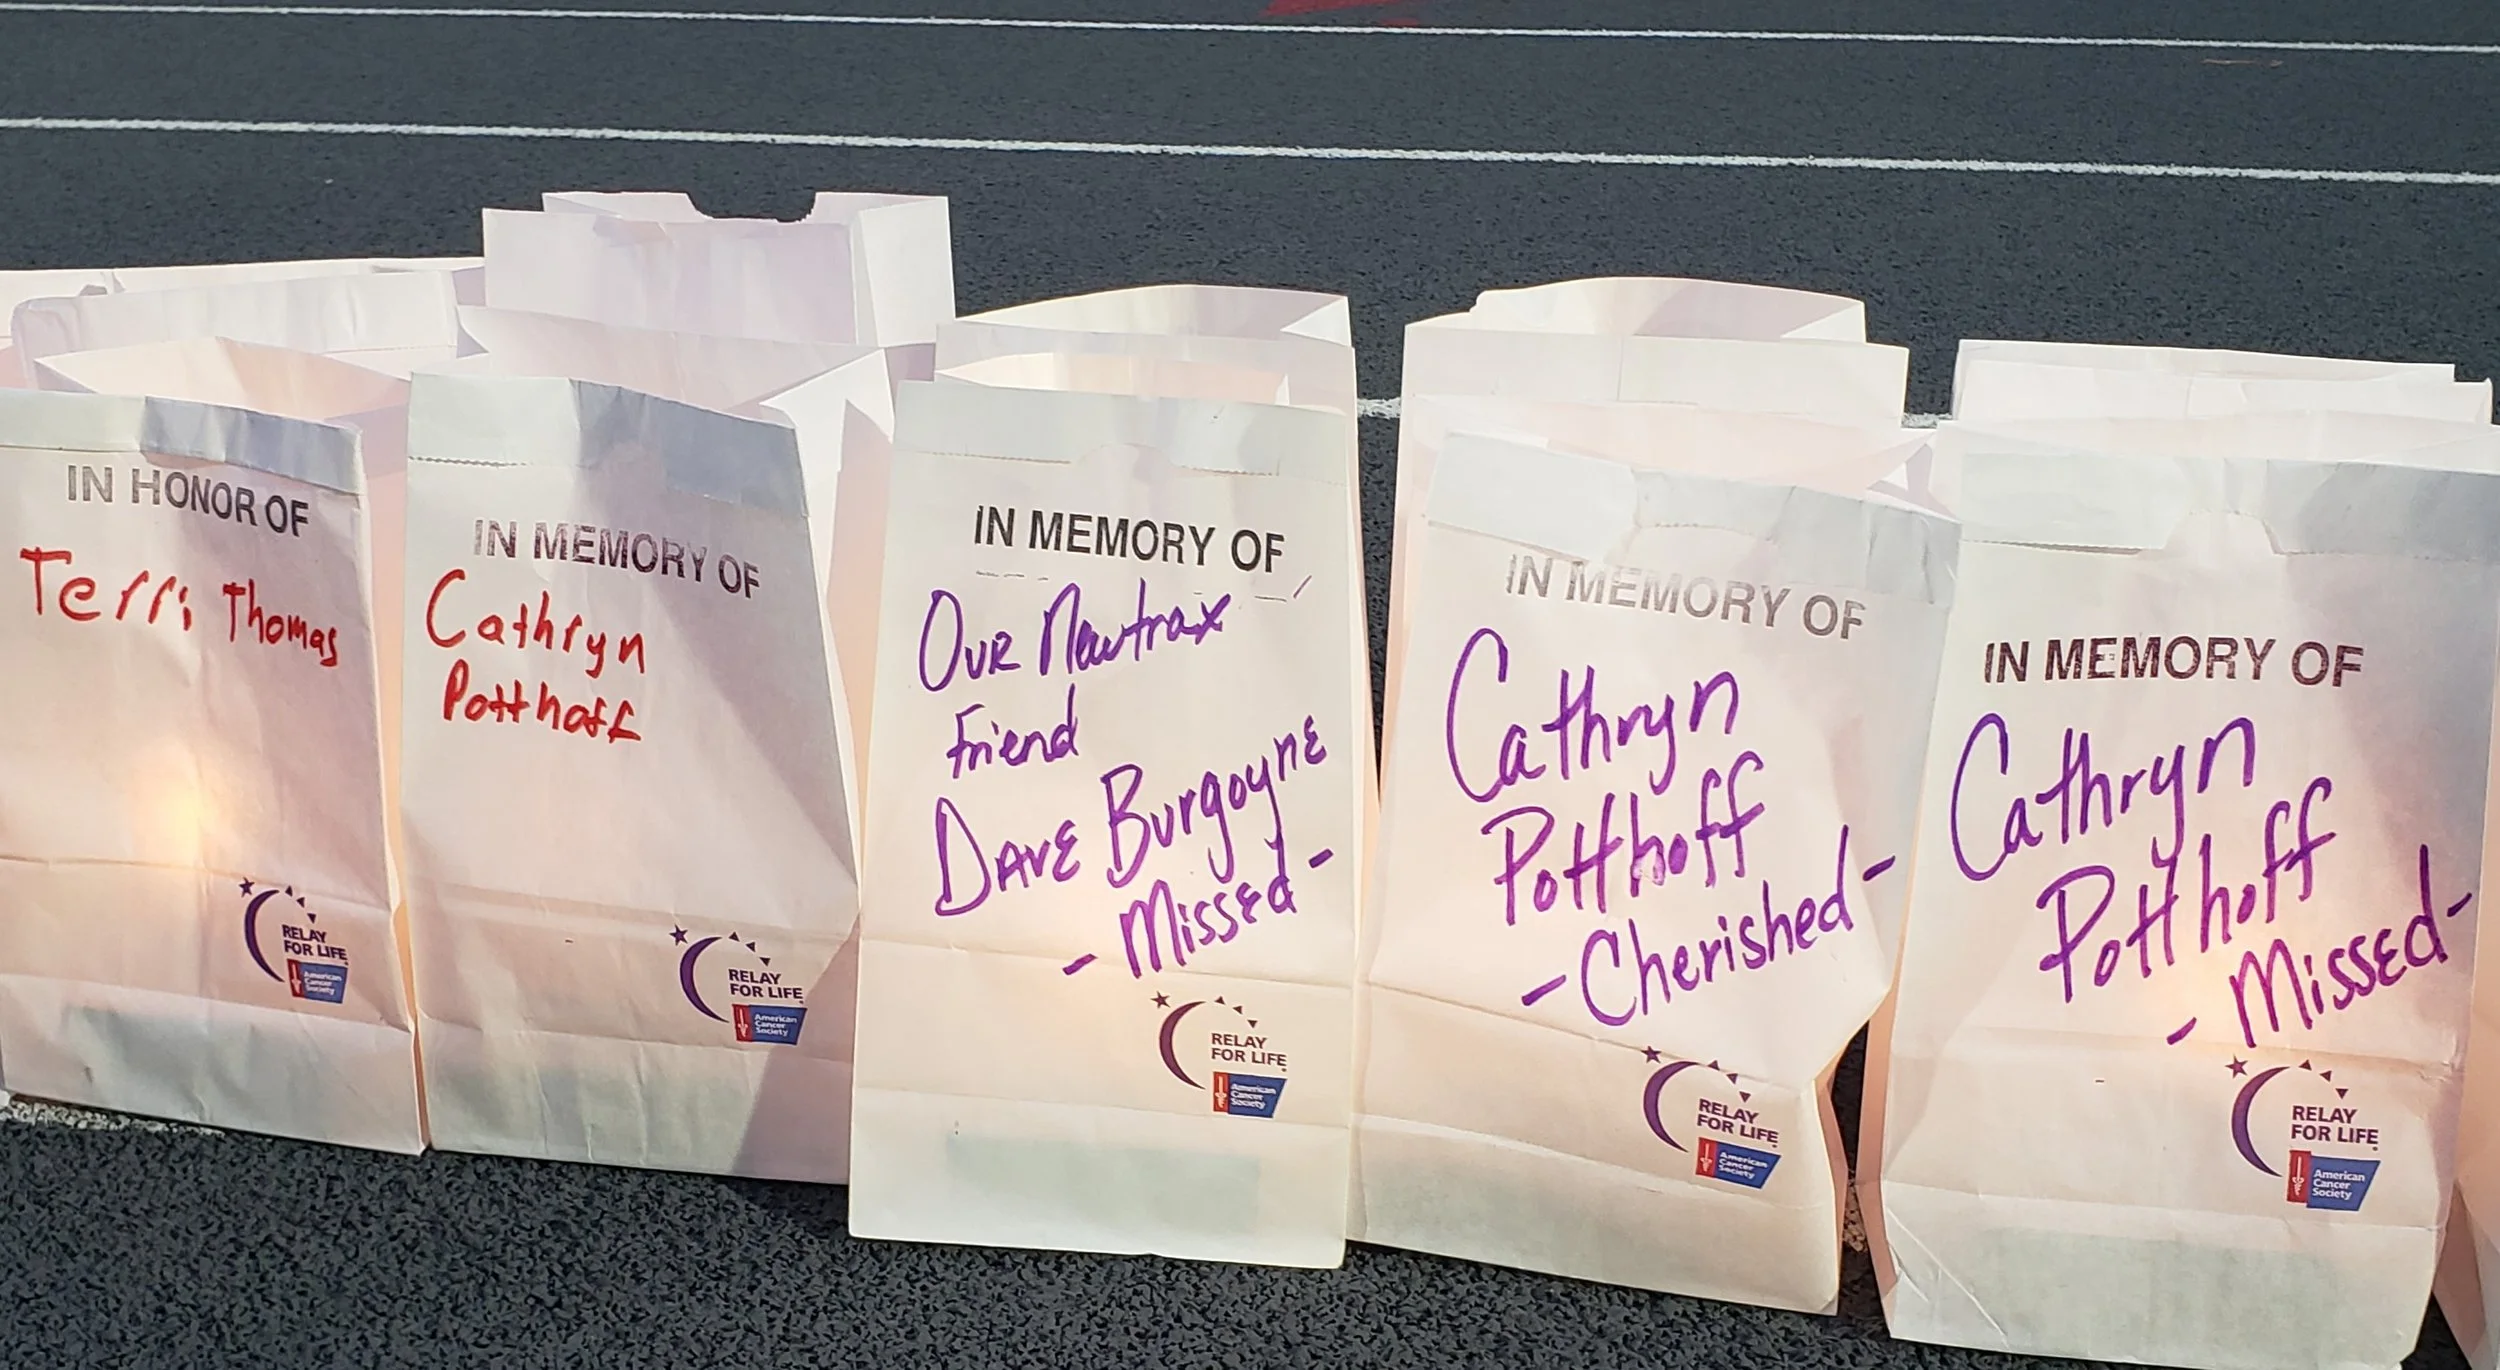 IN HONOR OF
Terri Thomas
RELAY
FOR LIFE
American
Cancer
Society
IN MEMORY OF
Cathryn
Potthoff
RELAY
FOR LIFE
American
Cancer
Society
IN MEMORY OF
Our Newtrax
Friend
Dave Burgoyne
- Missed -
RELAY
FOR LIFE
American
Cancer
Society
IN MEMORY OF
Cathryn
Potthoff
- Cherished -
RELAY
FOR LIFE
American
Cancer
Society
IN MEMORY OF
Cathryn
Potthoff
- Missed -
RELAY
FOR LIFE
American
Cancer
Society